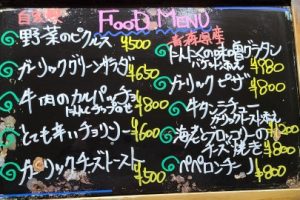 自家製
FOOD MENU
野菜のピクルス ¥500
ガーリックグリーンサラダ ¥650
牛肉のカルパッチョ ¥800
とても辛いチョリソー ¥600
ガーリックチーズトースト ¥500
青森県産
グラタン ¥980
ガーリックピザ ¥800
牛タンシチュー
ガーリックトースト添え ¥1800
海老とブロッコリーの
チーズ焼き ¥800
ペペロンチーノ ¥800